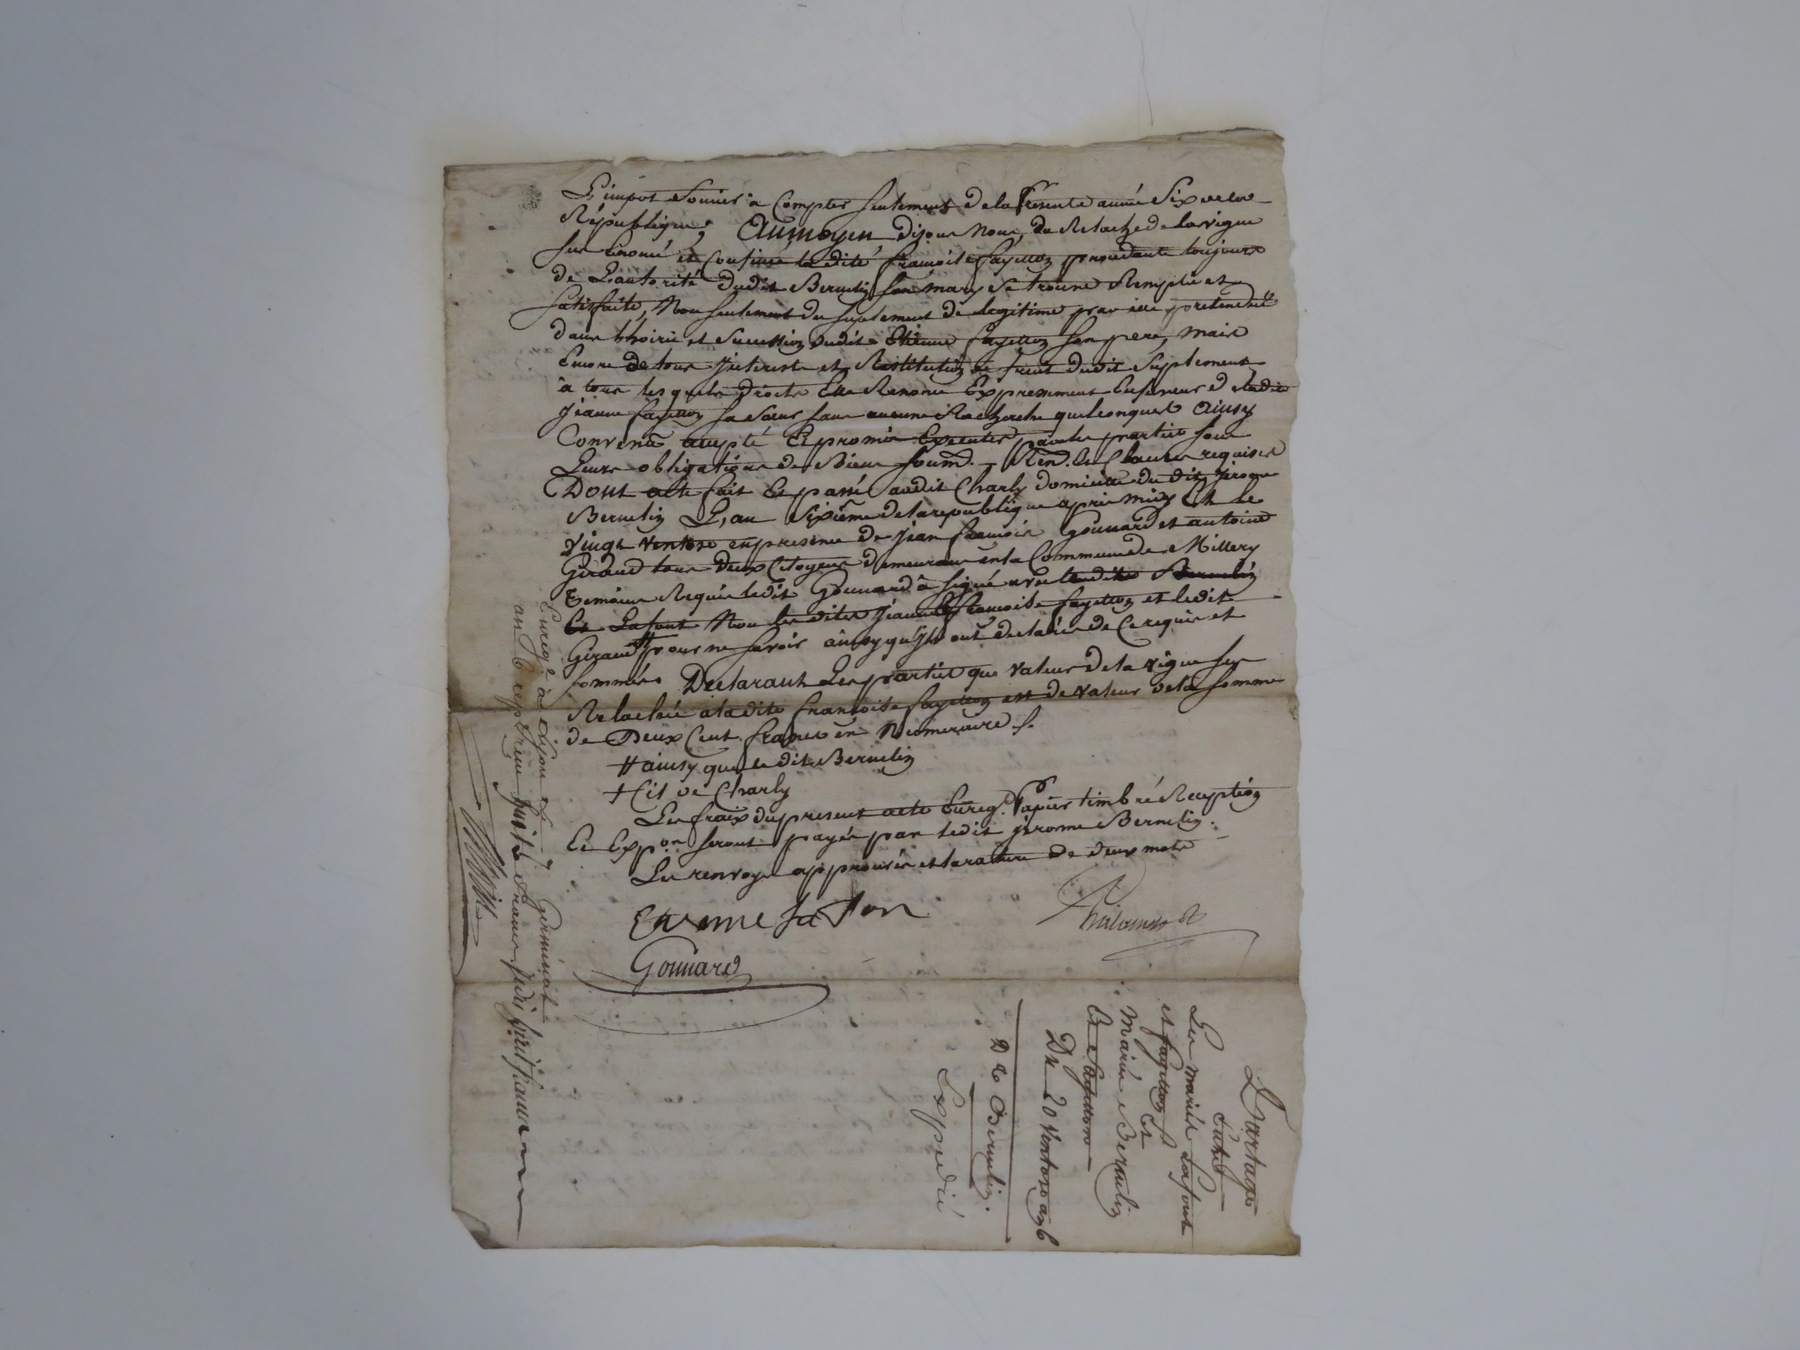 L'impot foncier a Compter seulement de la presente année Six de la
République; Aumoyen dijour Nous, du Relache de la vigne
sur enoncé et Confinée ladite françoise fayetton procedante toujours
de L'autorité dudit Bernelin son mary Se trouve Remplie et
satisfaite, Non seulement du suplement de Legitime par elle pretendue
dans l'hoirie et Succession dudit Etienne fayetton son pere, mais
Encore de tous jnterests et Restitution de fruits dudit Suplement
à tous lesquels droits Elle Renonce Expressement En faveur de ladite
jeanne fayetton sa sœur sans aucune Recherche quelconque ainsy
Convenu accepté Et promis Executer par les parties sous
Leurs obligations de Biens soumd. Rend. Et Clauses requises
Dont acte fait Et passé audit Charly domicile du dit jerome
Bernelin L'an Sixième de la republique apres midy Et le
vingt ventose en presence de jean françois Gonnard et antoine
Giraud tous deux Citoyens demeurant en la Commune de Millery
Temoins Requis ledit Gonnard a signé avec ledit Bernelin
Et Lafont Non lesdites jeanne & francoise fayetton et ledit
Giraud # pour ne savoir ainsy qu'jls ont declaré de Ce requis et
sommés Declarant Les parties que valeur de la vigne sus
Relachée a ladite francoise fayetton est de valeur de la somme
de Deux Cent francs en Numeraire /.
# ainsy que ledit Bernelin
+ Cit de Charly
Les fraix du present acte Enreg. Papier timbré Reception
Et Expon seront payés par ledit jerome Bernelin
Les renvoys approuvés et la rature de deux mots
Etienne la fon
Gonnard
Enregt à
Germinal
an 6 reçu
francs
Partage
Entre
Les mariés Lafont
et fayetton
Et
Mariés Bernelin
Et fayetton
Du 20 Ventose an 6
Du Bernelin.
Expedié